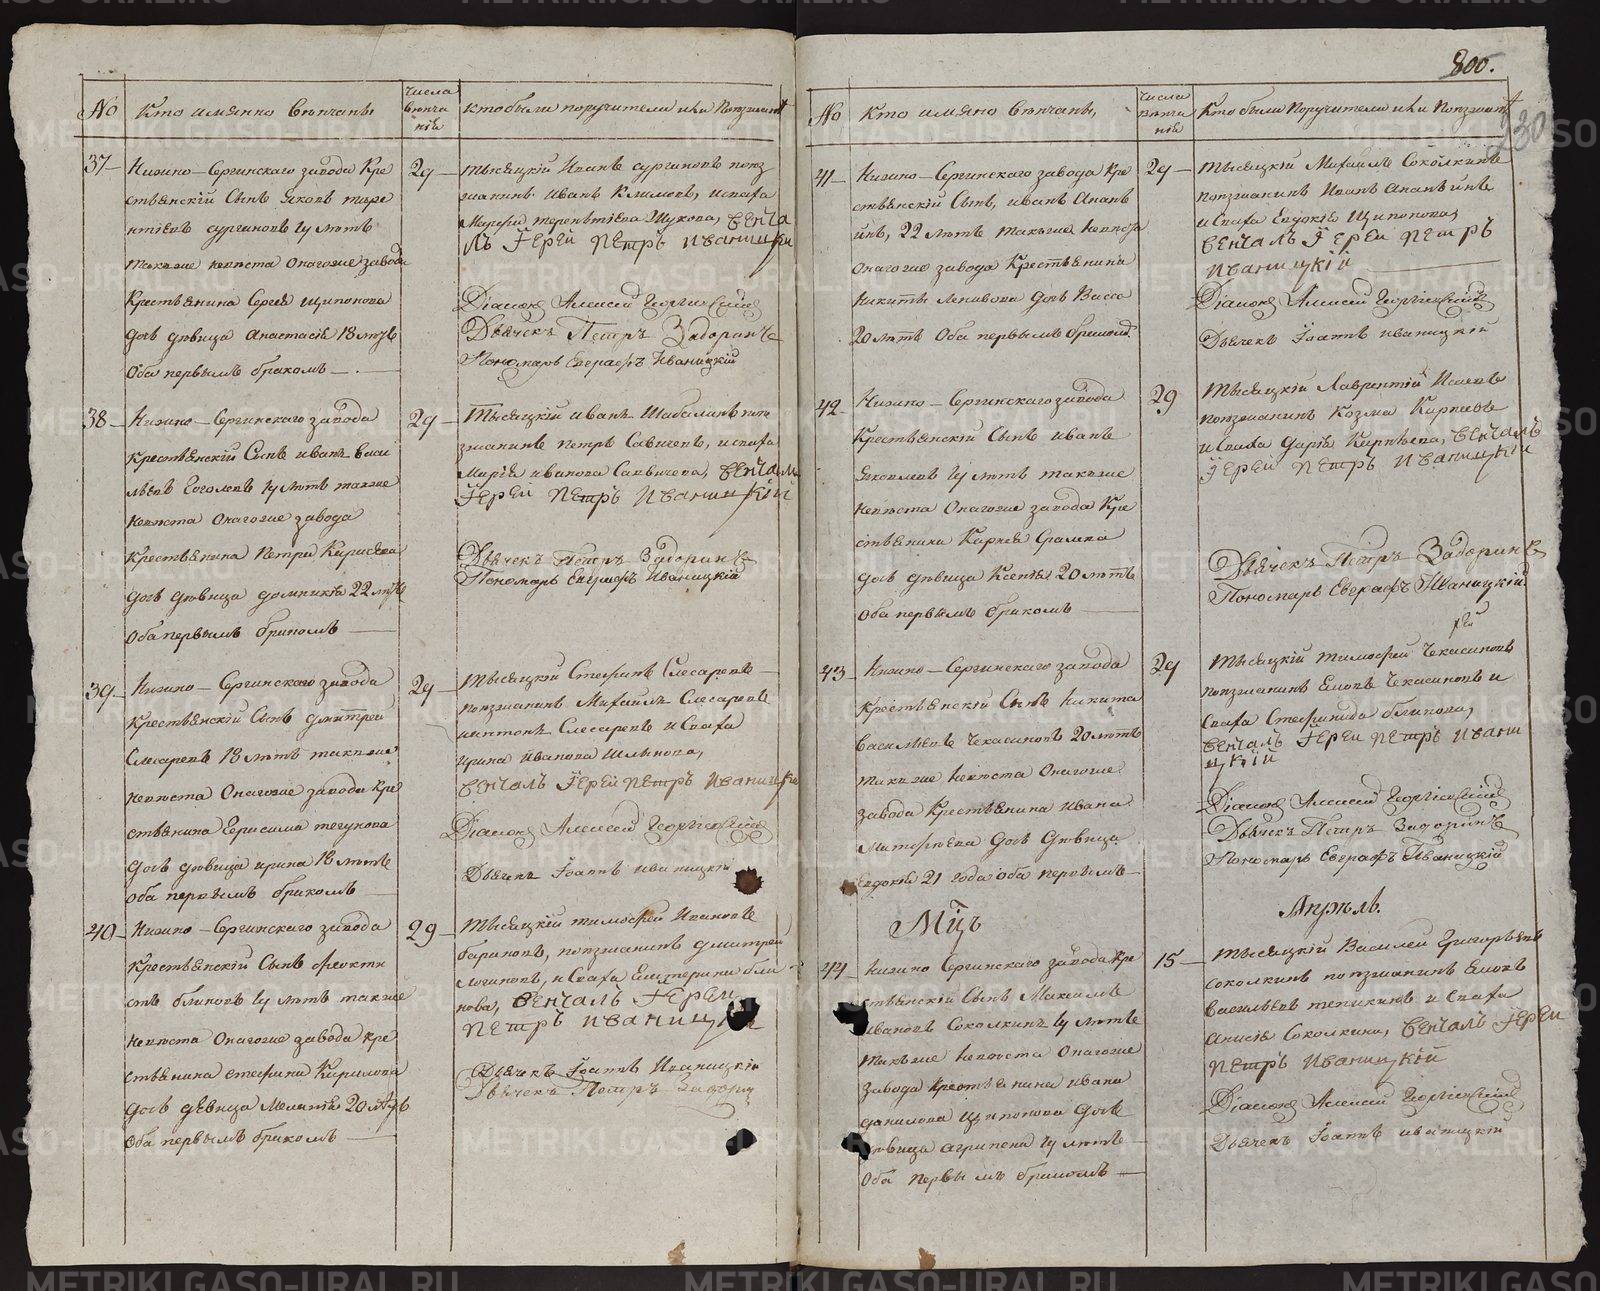 800.
230
No
Кто имянно венчаны
Числа венчания
кто были поручители или поезжаня
37
Нижно-Сергинскаго завода Кре
стьянскій Сынъ Яковъ тере
нтіевъ сургиновъ 19 летъ
такъже невеста онагоже завода
Крестьянина Сергея щипонова
дочь девица Анастасія 18 летъ
Оба первымъ бракомъ
29
тысяцкій Иванъ сургиновъ поез
жанинъ иванъ Климовъ, и сваха
терентіева Жукова, венча
лъ Іерей Петръ иваницкій
Діаконъ Алексей Георгіевскій
Дьячекъ Петръ Задоринъ
Пономарь Евграфъ Иваницкій
38
Нижно-Сергинскаго завода
Крестьянскій Сынъ иванъ васи
льевъ Гоголевъ 19 летъ также
невеста Онагоже завода
крестьянина Петра
дочь девица домникія 22 летъ
оба первымъ бракомъ
29
Тысяцкій иванъ Шабалинъ пое
зжанинъ петръ Савичевъ, и сваха
Марія иванова Савичева, венчалъ
Іерей Петръ Иваницкій
Дьячекъ Петръ Задоринъ
Пономарь Евграфъ Иваницкій
39
Нижно-Сергинскаго завода
Крестьянскій Сынъ дмитрей
Слесаревъ 18 летъ такъже
невеста Онагоже завода Кре
стьянина Герасима тегунова
дочь девица ирина 18 летъ
оба первымъ бракомъ
29
Тысяцкій Стефанъ Слесаревъ
поезжанинъ Михайлъ Слесаревъ
Слесаревъ и Сваха
ирина иванова
венчалъ Іерей Петръ Иваницкій
Діаконъ Алексей Георгіевскій
Дьячекъ Іоаннъ иваницкій
40
Нижно-Сергинскаго завода
Крестьянскій Сынъ феокти
стъ блиновъ 19 летъ также
невеста Онагоже завода кре
стьянина стефана Кирилова
дочь девица Меланія 20 летъ
оба первымъ бракомъ
29
Тысяцкій тимофей Ивановъ
барановъ, поезжанинъ дмитрей
логиновъ, и Сваха Екатерина бли
нова, венчалъ Іерей
Петръ иваницкій
Дьячекъ Іоаннъ Иваницкій
Дьячекъ Петръ Задорин
No
Кто имяно венчаны,
Числа венчания
Кто были Поручители или Поезжаня
41
Нижно-Сергинскаго завода Кре
стьянскій Сынъ, иванъ Анань
инъ, 22 летъ такъже невеста
онагоже завода Крестьянина
Никиты Ленивова дочь Васса
20 летъ Оба первымъ бракомъ
29
тысяцкій Михайлъ Соколкинъ
поезжанинъ Иванъ Ананьинъ
и Сваха Евдокія Щипонова,
венчалъ Іерей Петръ
Иваницкій
Діаконъ Алексей Георгіевскій
Дьячекъ Іоаннъ иваницкій
42
Нижно-Сергинскаго завода
Крестьянскій Сынъ иванъ
Яковлевъ 19 летъ такъже
невеста Онагоже завода Кре
стьянина Карпа
дочь девица Ксенія 20 летъ
оба первымъ бракомъ
29
тысяцкій Лаврентій Исаевъ
поезжанинъ Козма Карповъ
и Сваха Дарія Карпьева, венчалъ
Іерей Петръ Иваницкій
Дьячекъ Петръ Задоринъ
Пономарь Евграфъ Иваницкій
43
Нижно-Сергинскаго завода
крестьянскій Сынъ никита
васильевъ Чекасиновъ 20 летъ
такъже невеста Онагоже
завода Крестьянина ивана
Митофнова дочь девица
Евдокія 21 года оба первымъ
29
тысяцкій тимофей Чекасиновъ
поезжанинъ Емовъ Чекасиновъ и
Сваха Стефанида блинова,
венчалъ Іерей Петръ ивани
цкій
Діаконъ Алексей Георгіевскій
Дьячекъ Петръ Задоринъ
Пономарь Евграфъ Иваницкій
Мцъ
Апрель.
44
Нижно Сергинскаго завода Кре
стьянскій Сынъ Максимъ
ивановъ Соколкинъ 19 летъ
такъже невеста Онагоже
завода крестьянина ивана
данилова Щипонова дочь
девица агрипена 19 летъ
Оба первымъ бракомъ
15
тысяцкій Василей Григорьевъ
соколкинъ поезжанинъ Емовъ
васильевъ тепикинъ и Сваха
Анисія Соколкина, венчалъ Іерей
Петръ Иваницкій
Діаконъ Алексей Георгіевскій
Дьячекъ Іоаннъ иваницкій
METRIKI.GASO-URAL.RU